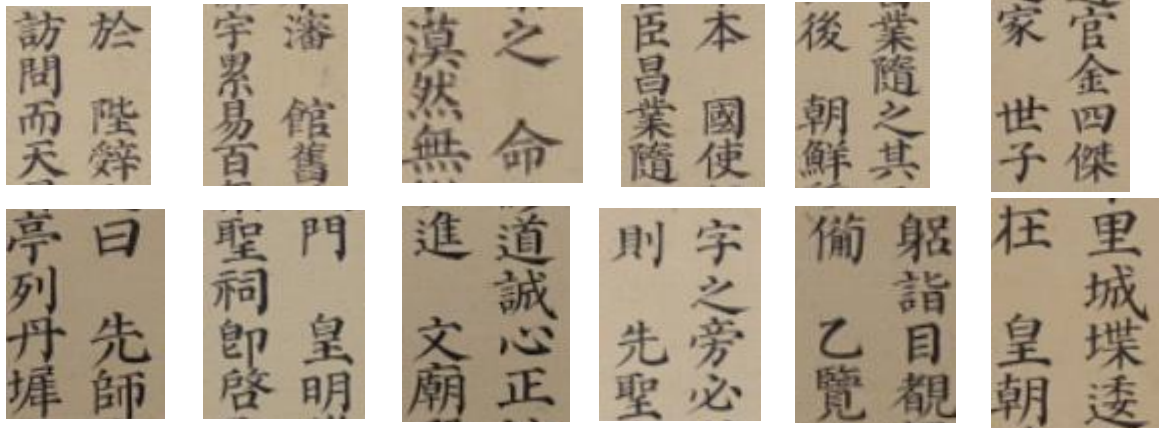 於 陛辤
訪問而天
瀋 館舊
宇累易百
之 命
漠然無
本 國使
臣昌業隨
業隨之其
後 朝鮮
官金四傑
家 世子
曰 先師
亭列丹墀
門 皇明
聖祠卽啓
道誠心正
進 文廟
字之旁必
則 先聖
躳詣目覩
備 乙覽
里城堞逶
在 皇朝